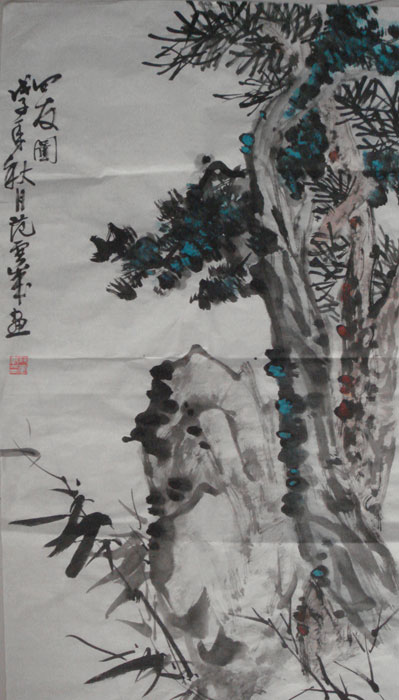 四友圖
戊子年秋月范雲峯画